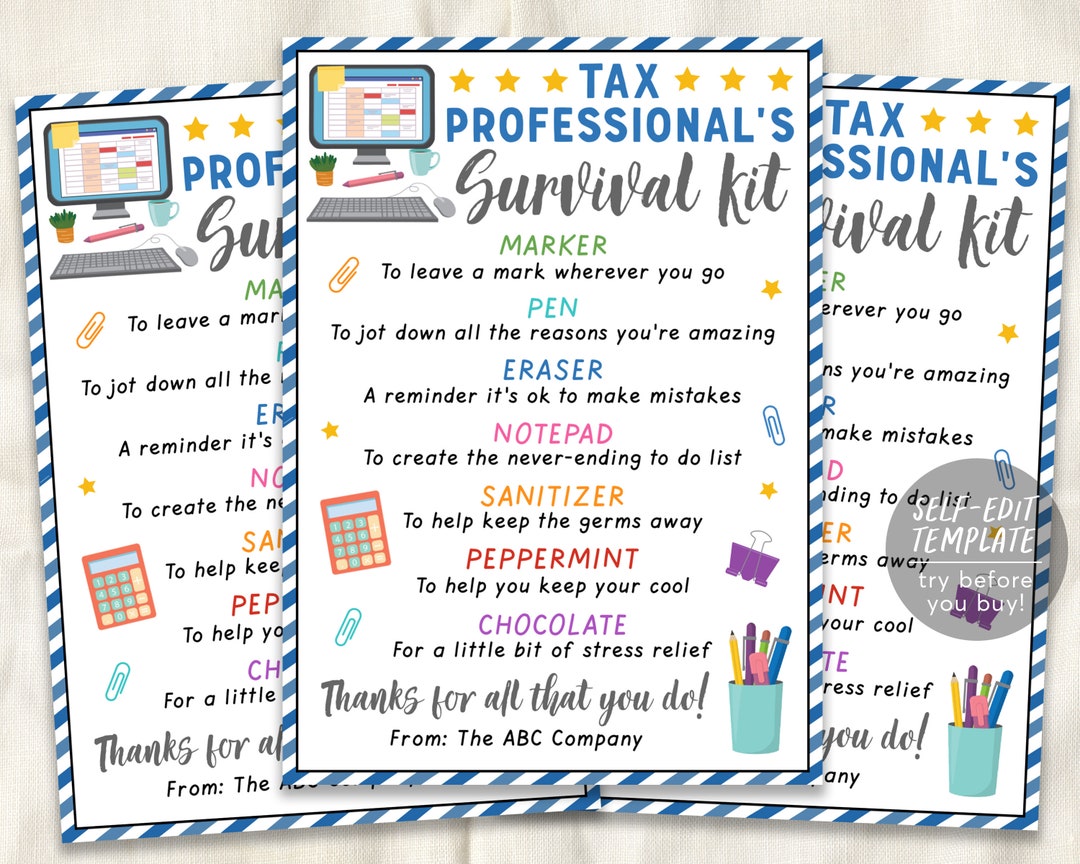 TAX
PROFESSIONAL'S
Survival Kit
MARKER
To leave a mark wherever you go
PEN
To jot down all the reasons you're amazing
ERASER
A reminder it's ok to make mistakes
NOTEPAD
To create the never-ending to do list
SANITIZER
To help keep the germs away
PEPPERMINT
To help you keep your cool
CHOCOLATE
For a little bit of stress relief
Thanks for all that you do!
From: The ABC Company
PROF
Su
MA
To leave a mar
To jot down all the
ER
A reminder it's
NO
To create the ne
SAN
To help kee
PEP
To help yo
CH
For a little
Thanks for al
From: The ABC Company
TAX
ESSIONAL'S
vival Kit
ER
erever you go
ns you're amazing
R
make mistakes
D
nding to do list
ER
erms away
INT
your cool
TE
ress relief
you do!
pany
SELF-EDIT
TEMPLATE
try before
you buy!